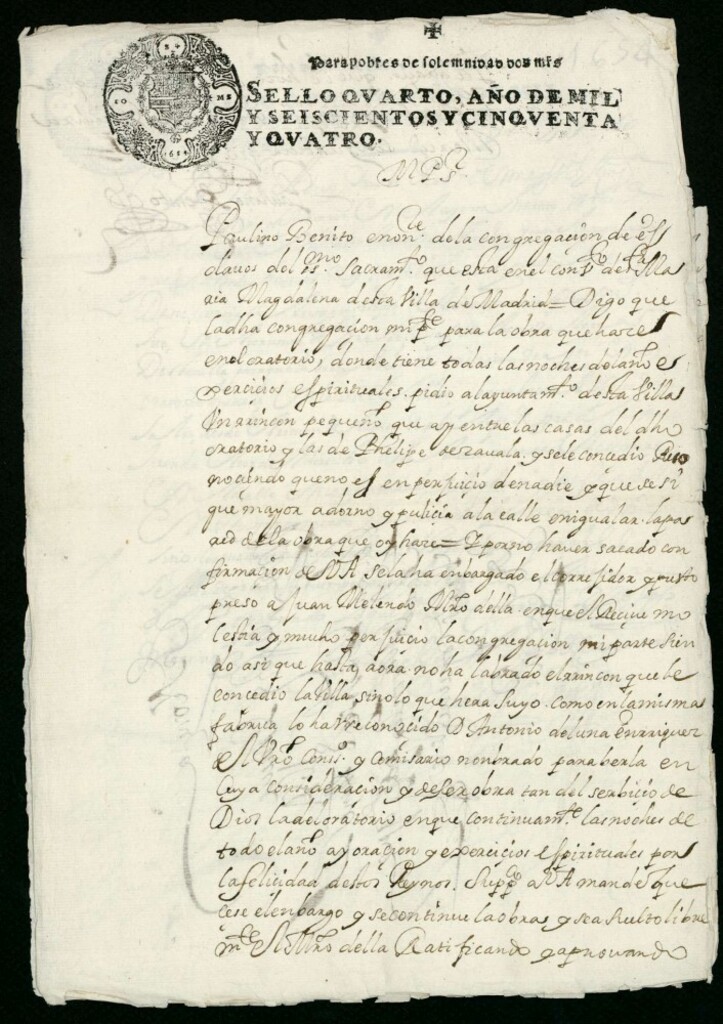 ✠
Para pobres de solemnidad dos mrs
SELLO QVARTO, AÑO DE MIL
Y SEISCIENTOS Y CINQVENTA
Y QVATRO.
M P S.r
Paulino Benito en on.ce de la congregacion de es
clavos del ss.mo Sacram.to que esta en el conv.to de s.ta Ma
ria Magdalena desta Villa de Madrid = Digo que
la dha congregacion mi p.te para la obra que hace
en el oratorio, donde tiene todas las noches del año e
xercicios espirituales. pidio al ayuntam.to desta Villa
Un rrincon pequeño que ay entre las casas del dho
oratorio y las de Phelipe de zavala. y se le concedio Reco
nociendo que no es en perjuicio de nadie y que se si
gue mayor adorno y pulicia a la calle en igualar la pa
red de la obra que oy hace = Y por no haver sacado con
firmacion de V A se la ha enbargado el corregidor y puesto
preso a Juan Melendo Mro della. en que el Recive mo
lestia y mucho perjuicio la congregacion mi parte sien
do asi que hasta aora no ha labrado el rrincon que le
concedio la Villa sino lo que hera suyo. como en la misma
fabrica lo ha rreconocido D Antonio de luna Enrriquez
El Vro Cons.o y Comisario nonbrado para berla en
Cuya consideracion y de ser obra tan del serbicio de
Dios la del oratorio en que continuam.te las noches de
todo el año ay oracion y exercicios espirituales por
la felicidad destos Reynos. Supp.co a V A mande que
cese el enbargo y se continue la obra y sea suelto libre
m.te El Mro della Ratificando y aprovando